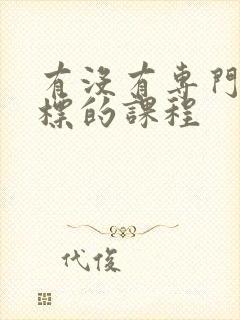 有沒有專門
標的課程
代俊